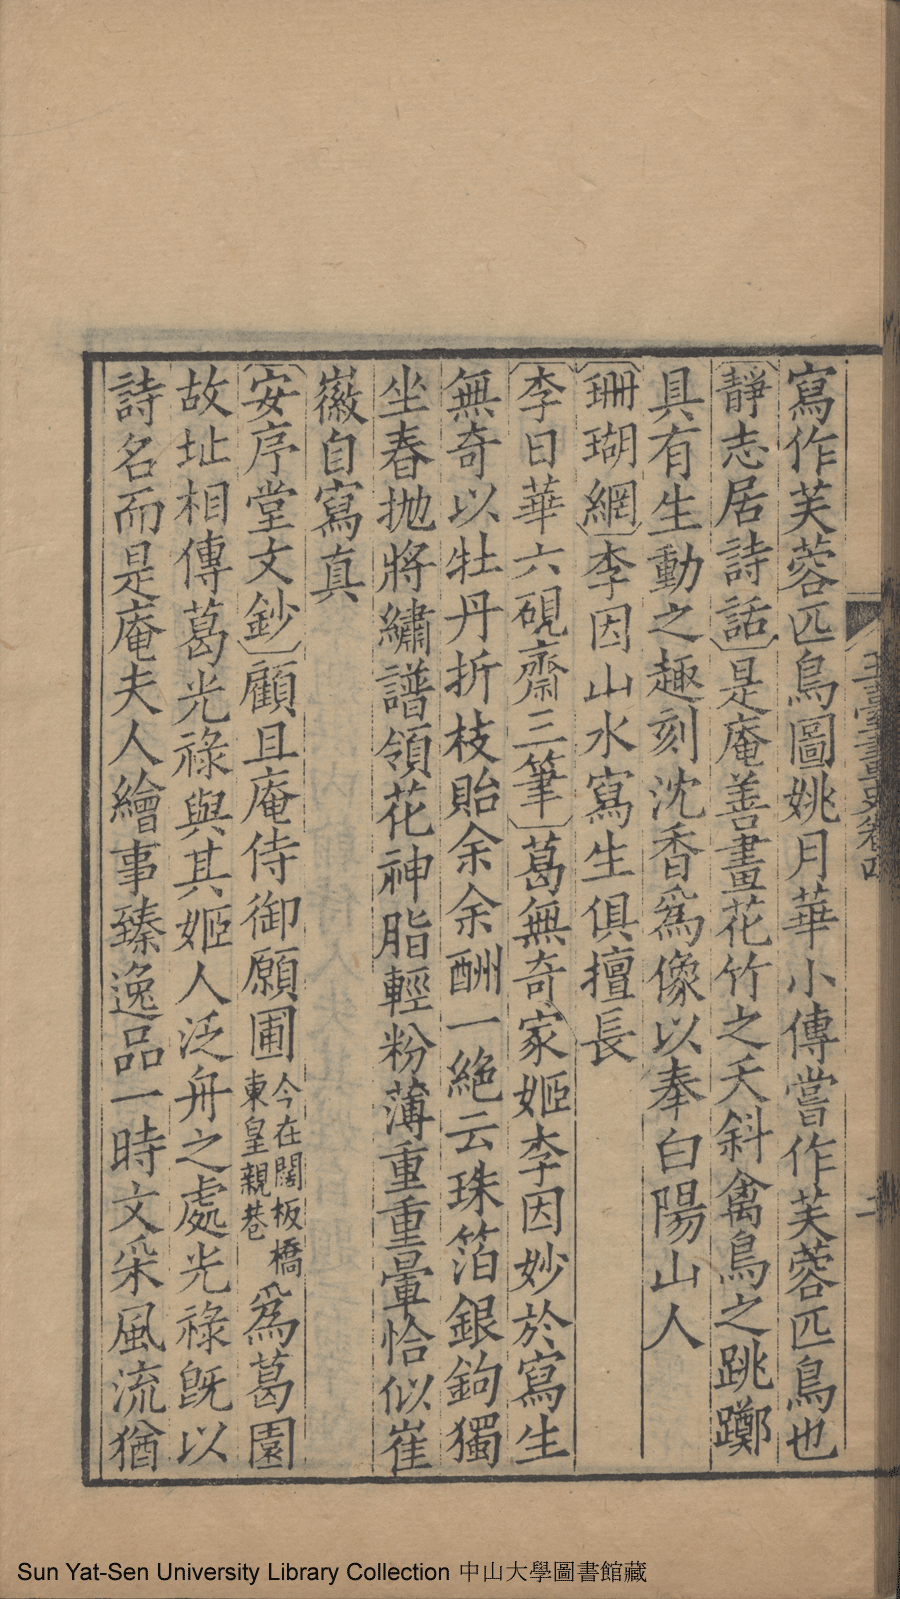 寫作芙蓉匹鳥圖姚月華小傳嘗作芙蓉匹鳥也
〔靜志居詩話〕是庵善畫花竹之夭斜禽鳥之跳躑
具有生動之趣刻沈香爲像以奉白陽山人
〔珊瑚網〕李因山水寫生俱擅長
〔李日華六硯齋三筆〕葛無奇家姬李因妙於寫生
無奇以牡丹折枝貽余余酬一絶云珠箔銀鉤獨
坐春拋將繡譜領花神脂輕粉薄重重暈恰似崔
徽自寫真
〔安序堂文鈔〕顧且庵侍御願圃今在闊板橋東皇親巷爲葛園
故址相傳葛光祿與其姬人泛舟之處光祿旣以
詩名而是庵夫人繪事臻逸品一時文采風流猶
玉臺畫史卷四
二
Sun Yat-Sen University Library Collection 中山大學圖書館藏